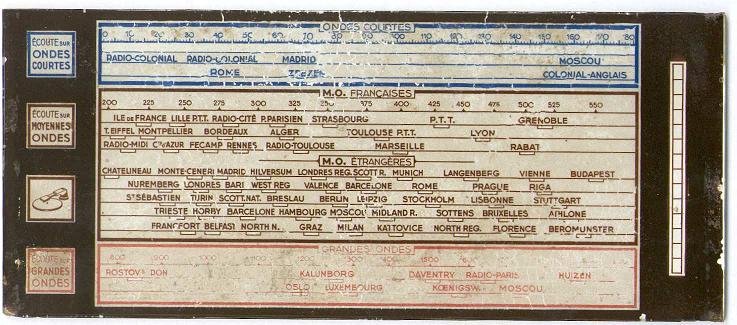 ONDES COURTES
ÉCOUTE SUR
ONDES
COURTES
0 10 20 30 40 50 60 70 80 90 100 110 120 130 140 150 160 170 180
RADIO-COLONIAL RADIO-COLONIAL MADRID MOSCOU
ROME ZEESEN COLONIAL-ANGLAIS
M.O. FRANÇAISES
ÉCOUTE SUR
MOYENNES
ONDES
200 225 250 275 300 325 350 375 400 425 450 475 500 525 550
ILE DE FRANCE LILLE P.T.T. RADIO-CITÉ P.PARISIEN STRASBOURG P.T.T. GRENOBLE
T.EIFFEL MONTPELLIER BORDEAUX ALGER TOULOUSE P.T.T. LYON
RADIO-MIDI CTE D'AZUR FECAMP RENNES RADIO-TOULOUSE MARSEILLE RABAT
M.O. ÉTRANGÈRES
CHATELINEAU MONTE-CENERI MADRID HILVERSUM LONDRES REG. SCOTT R. MUNICH LANGENBERG VIENNE BUDAPEST
NUREMBERG LONDRES BARI WEST REG VALENCE BARCELONE ROME PRAGUE RIGA
ST SÉBASTIEN TURIN SCOTT.NAT. BRESLAU BERLIN LEIPZIG STOCKHOLM LISBONNE STUTTGART
TRIESTE HORBY BARCELONE HAMBOURG MOSCOU MIDLAND R. SOTTENS BRUXELLES ATHLONE
FRANCFORT BELFAST NORTH N. GRAZ MILAN KATTOVICE NORTH REG. FLORENCE BEROMUNSTER
GRANDES ONDES
ÉCOUTE SUR
GRANDES
ONDES
800 900 1000 1100 1200 1300 1400 1500 1600
ROSTOV S DON KALUNBORG DAVENTRY RADIO-PARIS HUIZEN
OSLO LUXEMBOURG KŒNIGSW. MOSCOU